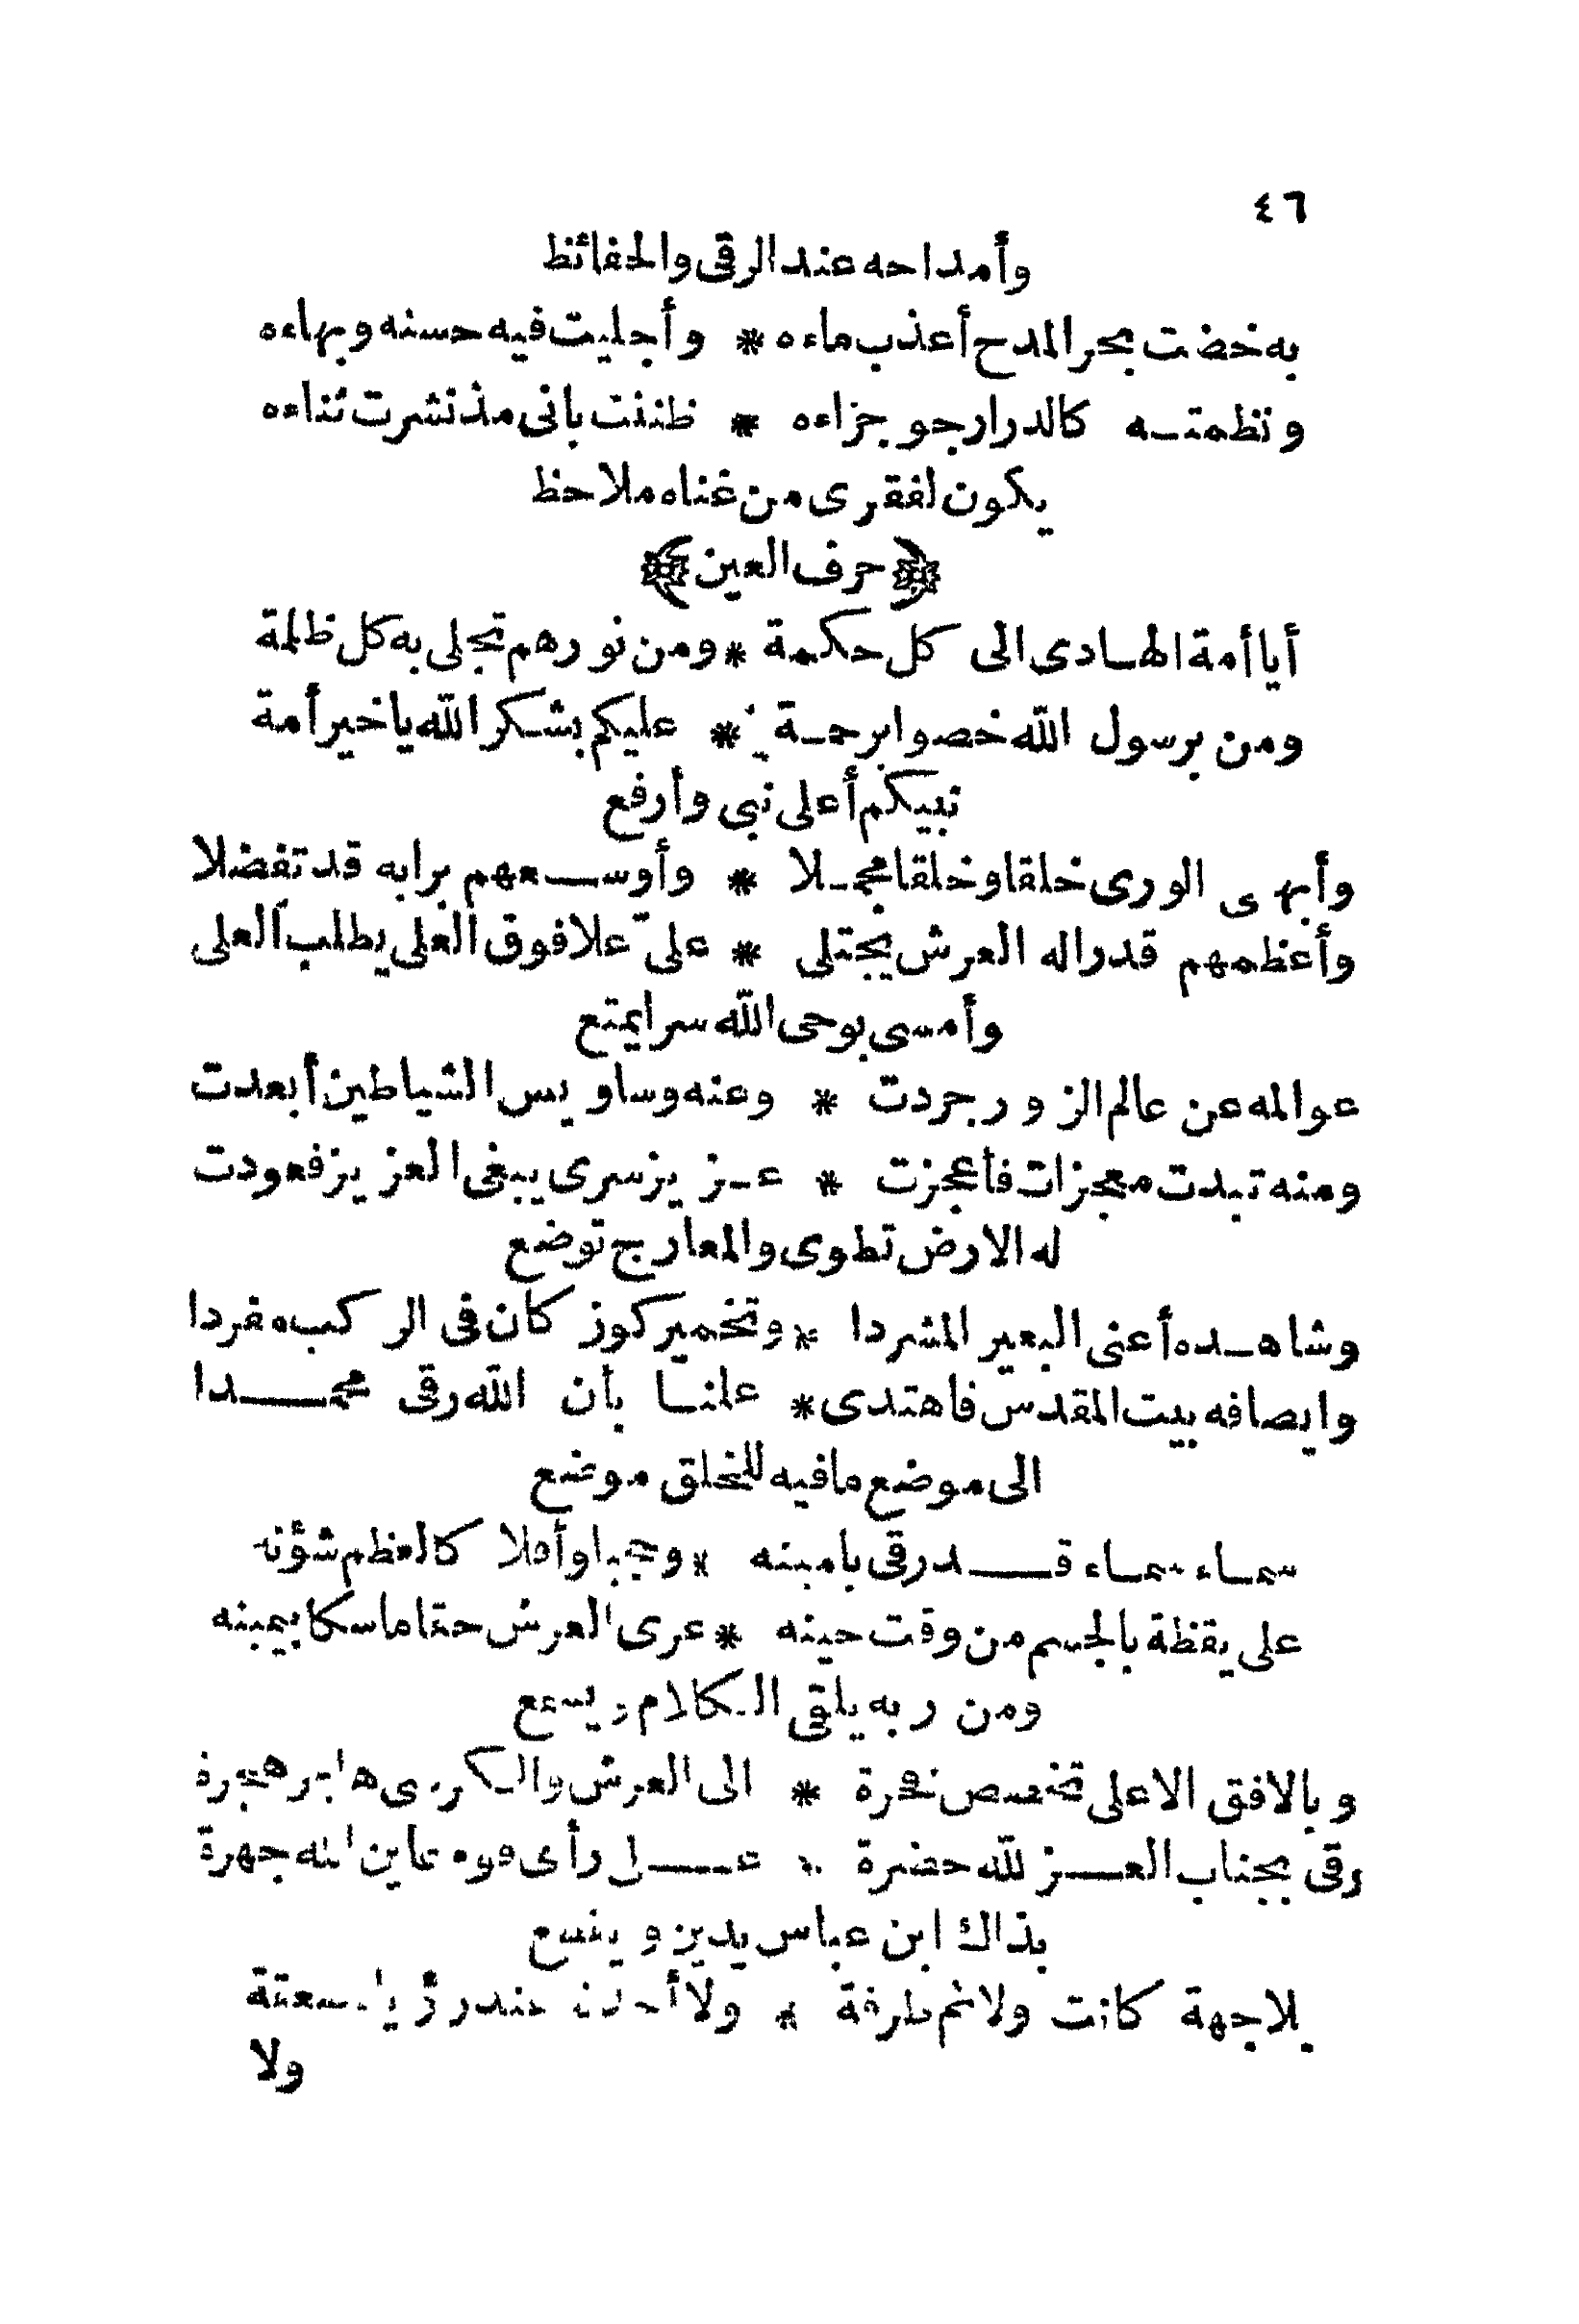 ٤٦
وأمداحه عند الرقى والحفائظ
به خضت بحر المدح أعذب ماءه * وأجليت فيه حسنه وبهاءه
ونظمتـه كالدر ارجو جزاءه * ظننت بانى مذ نشرت ثناءه
يكون لفقرى من غناه ملاحظ
﴿حرف العين﴾
أيا أمة الهـادى الى كل حكمة * ومن نورهم تجلى به كل ظلمة
ومن برسول الله خصوا برحمـة * عليكم بشـكر الله يا خير أمة
نبيكم أعلى نبى وأرفع
وأبهى الورى خلقا وخلقا مجمـلا * وأوسـعهم برا به قد تفضلا
وأعظمهم قدرا له العرش يجتلى * علىّ علا فوق العلى يطلب العلى
وأمسى بوحى الله سرا يمتع
عوالمه عن عالم الزور جردت * وعنه وساويس الشياطين أبعدت
ومنه تبدت معجزات فأعجزت * عـزيز سرى يبغى العزيز فعودت
له الارض تطوى والمعارج توضع
وشاهـده أعنى البعير المشردا * وتخمير كوز كان فى الركب مفردا
وايصافه بيت المقدس فاهتدى * علنـا بأن الله رقى محمـدا
الى موضع ما فيه للخلق موضع
سمـاء سمـاء قـد رقى بامينه * وحجبا وأملاكا لعظم شؤنه
على يقظة بالجسم من وقت حينه * عرى العرش حقا ماسكا بيمينه
ومن ربه يلقى الـكلام ويسمع
وبالافق الاعلى تخصص نحرة * الى العرش والـكرسى هاجر هجرة
رقى بجناب العـز لله حضرة * رأى عاين الله جهرة
بذاك ابن عباس يدين
بلا جهة كانت ولا ثم طرفة * ولا
ولا